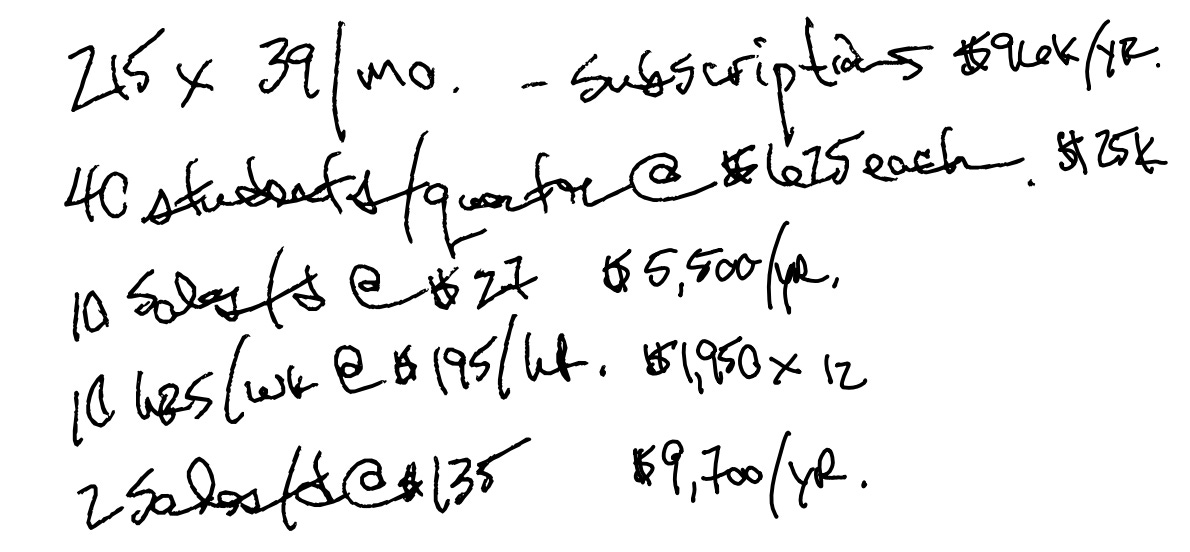 215 x 39/mo. - Subscriptions $96k/YR.
40 students/quarter @ $625 each. $25k
10 Sales/d @ $27 $5,500/yr.
10 hRS/wk @ $195/hR. $1,950 x 12
2 Sales/d @ $135 $9,700/yR.